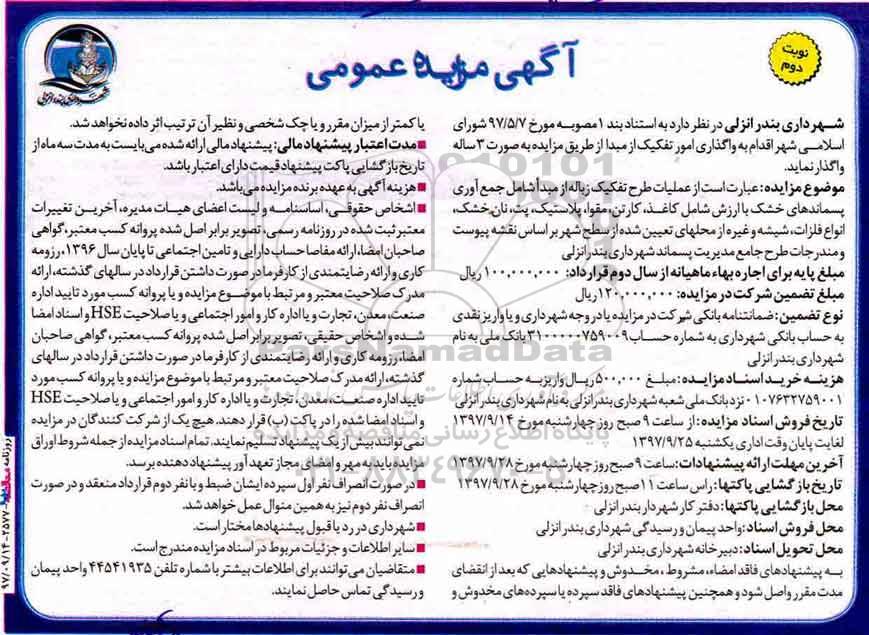 آگهی مزایده عمومی
نوبت
دوم
شهرداری بندر انزلی
شهرداری بندر انزلی در نظر دارد به استناد بند ۱ مصوبه مورخ ۹۷/۵/۷ شورای
اسلامی شهر اقدام به واگذاری امور تفکیک از مبدا از طریق مزایده به صورت ۳ ساله
واگذار نماید.
موضوع مزایده: عبارت است از عملیات طرح تفکیک زباله از مبدأ شامل جمع آوری
پسماندهای خشک با ارزش شامل کاغذ، کارتن، مقوا، پلاستیک، پت، نان خشک،
انواع فلزات، شیشه و غیره از محلهای تعیین شده از سطح شهر بر اساس نقشه پیوست
و مندرجات طرح جامع مدیریت پسماند شهرداری بندر انزلی
مبلغ پایه برای اجاره بهاء ماهیانه از سال دوم قرارداد: ۱۰۰,۰۰۰,۰۰۰ ریال
مبلغ تضمین شرکت در مزایده: ۱۲۰,۰۰۰,۰۰۰ ریال
نوع تضمین: ضمانتنامه بانکی شرکت در مزایده یا در وجه شهرداری و یا واریز نقدی
به حساب بانکی شهرداری به شماره حساب ۳۱۰۰۰۰۰۷۵۹۰۰۹ بانک ملی به نام
شهرداری بندر انزلی
هزینه خرید اسناد مزایده: مبلغ ۵۰۰,۰۰۰ ریال واریز به حساب شماره
۰۱۰۷۶۳۲۷۵۹۰۰۱ نزد بانک ملی شعبه شهرداری بندر انزلی به نام شهرداری بندر انزلی
تاریخ فروش اسناد مزایده: از ساعت ۹ صبح روز چهارشنبه مورخ ۱۳۹۷/۹/۱۴
لغایت پایان وقت اداری یکشنبه ۱۳۹۷/۹/۲۵
آخرین مهلت ارائه پیشنهادات: ساعت ۹ صبح روز چهارشنبه مورخ ۱۳۹۷/۹/۲۸
تاریخ بازگشایی پاکتها: راس ساعت ۱۱ صبح روز چهارشنبه مورخ ۱۳۹۷/۹/۲۸
محل بازگشایی پاکتها: دفتر کار شهردار بندر انزلی
محل فروش اسناد: واحد پیمان و رسیدگی شهرداری بندر انزلی
محل تحویل اسناد: دبیرخانه شهرداری بندر انزلی
به پیشنهادهای فاقد امضاء، مشروط، مخدوش و پیشنهادهایی که بعد از انقضای
مدت مقرر واصل شود و همچنین پیشنهادهای فاقد سپرده یا سپرده‌های مخدوش و
یا کمتر از میزان مقرر و یا چک شخصی و نظیر آن ترتیب اثر داده نخواهد شد.
■ مدت اعتبار پیشنهاد مالی: پیشنهاد مالی ارائه شده می‌بایست به مدت سه ماه از
تاریخ بازگشایی پاکت پیشنهاد قیمت دارای اعتبار باشد.
■ هزینه آگهی به عهده برنده مزایده می‌باشد.
■ اشخاص حقوقی، اساسنامه و لیست اعضای هیات مدیره، آخرین تغییرات
معتبر ثبت شده در روزنامه رسمی، تصویر برابر اصل شده پروانه کسب معتبر، گواهی
صاحبان امضا، ارائه مفاصا حساب دارایی و تامین اجتماعی تا پایان سال ۱۳۹۶، رزومه
کاری و ارائه رضایتمندی از کارفرما در صورت داشتن قرارداد در سالهای گذشته، ارائه
مدرک صلاحیت معتبر و مرتبط با موضوع مزایده و یا پروانه کسب مورد تایید اداره
صنعت، معدن، تجارت و یا اداره کار و امور اجتماعی و یا صلاحیت HSE و اسناد امضا
شده و اشخاص حقیقی، تصویر برابر اصل شده پروانه کسب معتبر، گواهی صاحبان
امضا، رزومه کاری و ارائه رضایتمندی از کارفرما در صورت داشتن قرارداد در سالهای
گذشته، ارائه مدرک صلاحیت معتبر و مرتبط با موضوع مزایده و یا پروانه کسب مورد
تایید اداره صنعت، معدن، تجارت و یا اداره کار و امور اجتماعی و یا صلاحیت HSE
و اسناد امضا شده را در پاکت (ب) قرار دهند. هیچ یک از شرکت کنندگان در مزایده
نمی‌توانند بیش از یک پیشنهاد تسلیم نمایند. تمام اسناد مزایده از جمله شروط اوراق
مزایده باید به مهر و امضای مجاز تعهدآور پیشنهاد دهنده برسد.
■ در صورت انصراف نفر اول سپرده ایشان ضبط و با نفر دوم قرارداد منعقد و در صورت
انصراف نفر دوم نیز به همین منوال عمل خواهد شد.
■ شهرداری در رد یا قبول پیشنهادها مختار است.
■ سایر اطلاعات و جزئیات مربوط در اسناد مزایده مندرج است.
■ متقاضیان می‌توانند برای اطلاعات بیشتر با شماره تلفن ۴۴۵۴۱۹۳۵ واحد پیمان
و رسیدگی تماس حاصل نمایند.